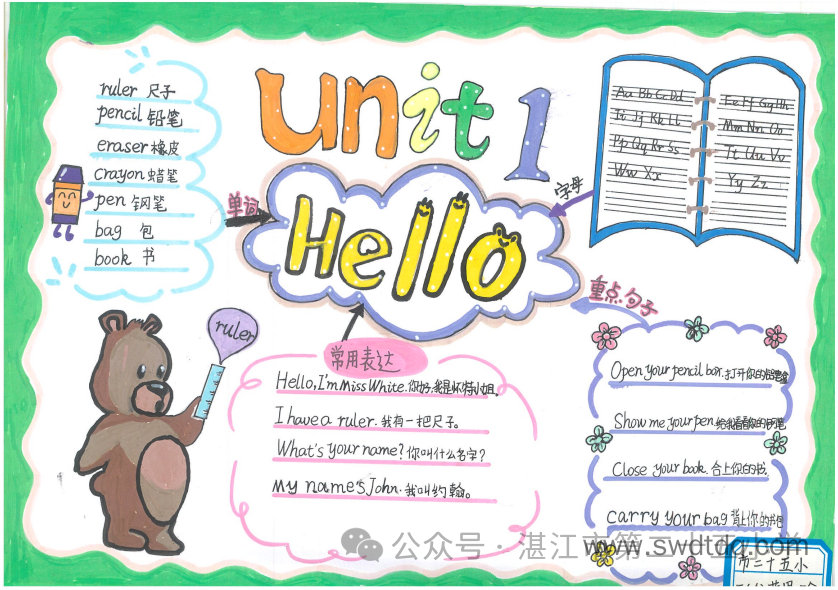 unit 1
Hello
单词
ruler 尺子
pencil 铅笔
eraser 橡皮
crayon 蜡笔
pen 钢笔
bag 包
book 书
字母
Aa Bb Cc Dd
Ii Jj Kk LL
Pp Qq Rr Ss
Ww Xx
Ee Ff Gg Hh
Mm Nn Oo
Tt Uu Vv
Yy Zz
ruler
常用表达
Hello, I'm Miss White. 你好,我是怀特小姐。
I have a ruler. 我有一把尺子。
What's your name? 你叫什么名字?
My name's John. 我叫约翰。
重点句子
Open your pencil box. 打开你的铅笔盒
Show me your pen 给我看看你的钢笔
Close your book. 合上你的书.
carry your bag 背上你的书包
公众号·湛江市第二
www.swdtdq.com
市二十五小